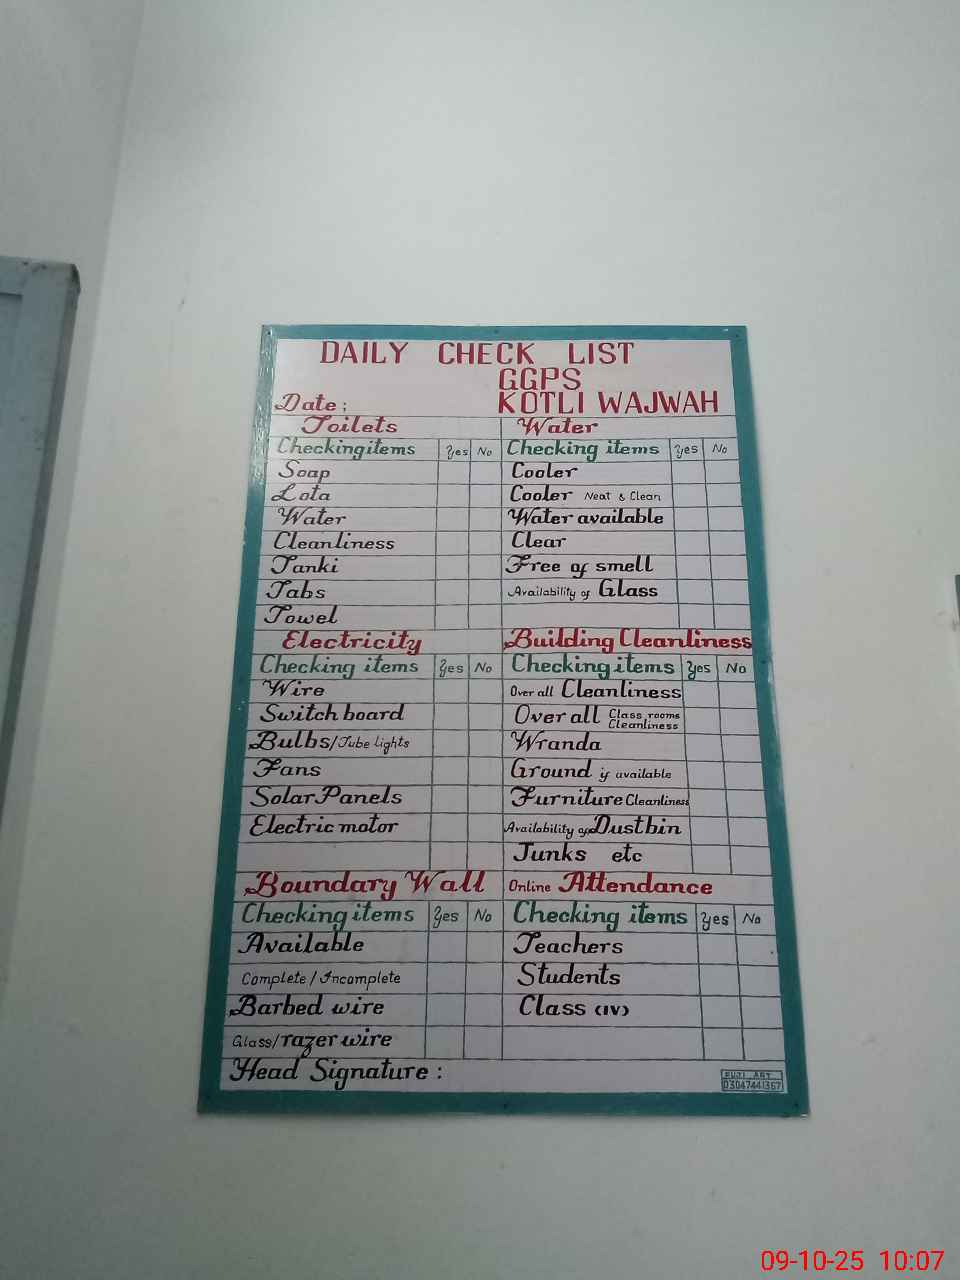 DAILY CHECK LIST
GGPS
Date; KOTLI WAJWAH
Toilets
Checking items Yes No
Soap
Lota
Water
Cleanliness
Tanki
Tabs
Towel
Water
Checking items Yes No
Cooler
Cooler Neat & Clean
Water available
Clear
Free of smell
Availability of Glass
Electricity
Checking items Yes No
Wire
Switch board
Bulbs/Tube lights
Fans
Solar Panels
Electric motor
Building Cleanliness
Checking items Yes No
Over all Cleanliness
Over all Class rooms Cleanliness
Wranda
Ground if available
Furniture Cleanliness
Availability of Dustbin
Junks etc
Boundary Wall
Checking items Yes No
Available
Complete/Incomplete
Barbed wire
Glass/razer wire
Online Attendance
Checking items Yes No
Teachers
Students
Class (IV)
Head Signature :
FUJI ART
03047441367
09-10-25 10:07